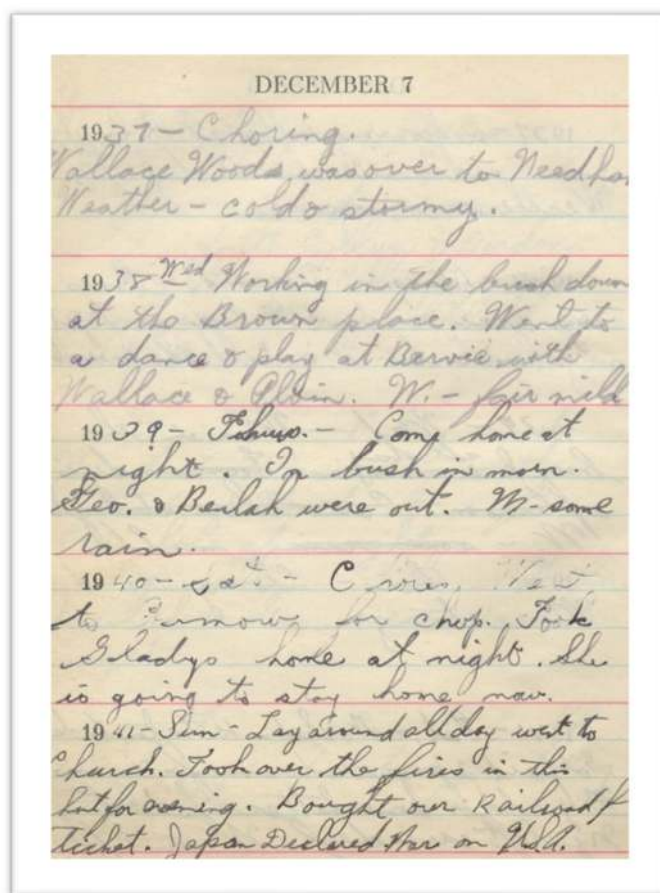 DECEMBER 7
1937 - Choring.
Wallace Woods was over to Needha
Weather - cold & stormy.
1938 Wed Working in the bush down
at the Brown place. Went to
a dance & play at Bervie with
Wallace & Alvin. W. - fair mild
1939 - Thurs. - Come home at
night. In bush in morn.
Geo. & Beulah were out. W - some
rain.
1940 - Sat - Went
to for chop. Took
Gladys home at night. She
is going to stay home now.
1941 - Sun - Lay around all day went to
Church. Took over the fires in this
hut for evening. Bought our Railroad
ticket. Japan Declared War on U.S.A.